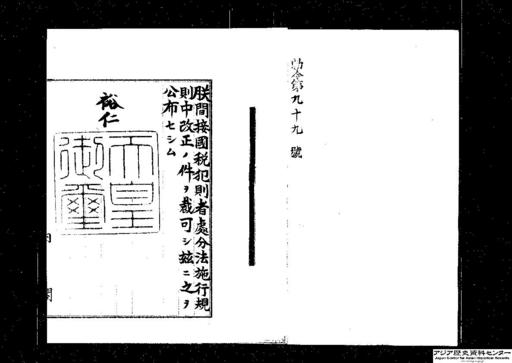 勅令第九十九號
朕間接國税犯則者處分法施行規
則中改正ノ件ヲ裁可シ茲ニ之ヲ
公布セシム
裕仁
天皇
御璽
内
閣
アジア歴史資料センター
Japan Center for Asian Historical Records